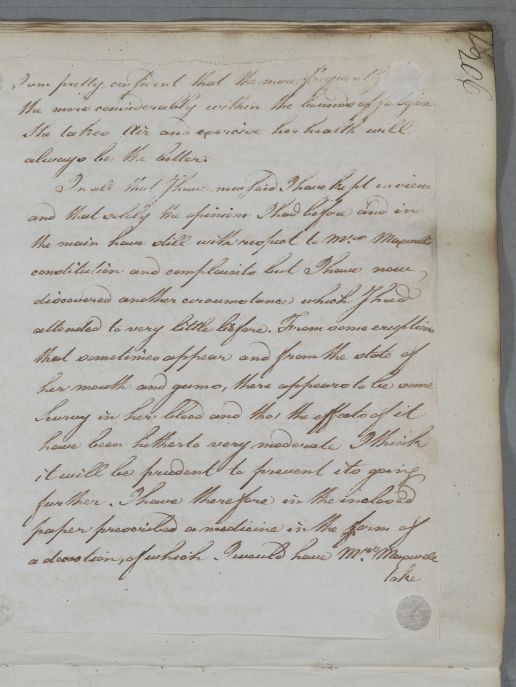 206
I am pretty confident that the more frequently and
the more considerably within the bounds of fatigue
She takes Air and exercise her health will
always be the better.
In all that I have now said I have kept in view
and that solely the opinion I had before and in
the main have still with respect to Mrs. Maxwells
constitution and complaints but I have now
discovered another circumstance which I had
attended to very little before. From some eruptions
that sometimes appear and from the state of
her mouth and gums, there appears to be some
Scurvy in her blood and tho' the effects of it
have been hitherto very moderate I think
it will be prudent to prevent its going
further. I have therefore in the inclosed
paper prescribed a medicine in the form of
a decoction, of which I would have Mrs. Maxwell
take